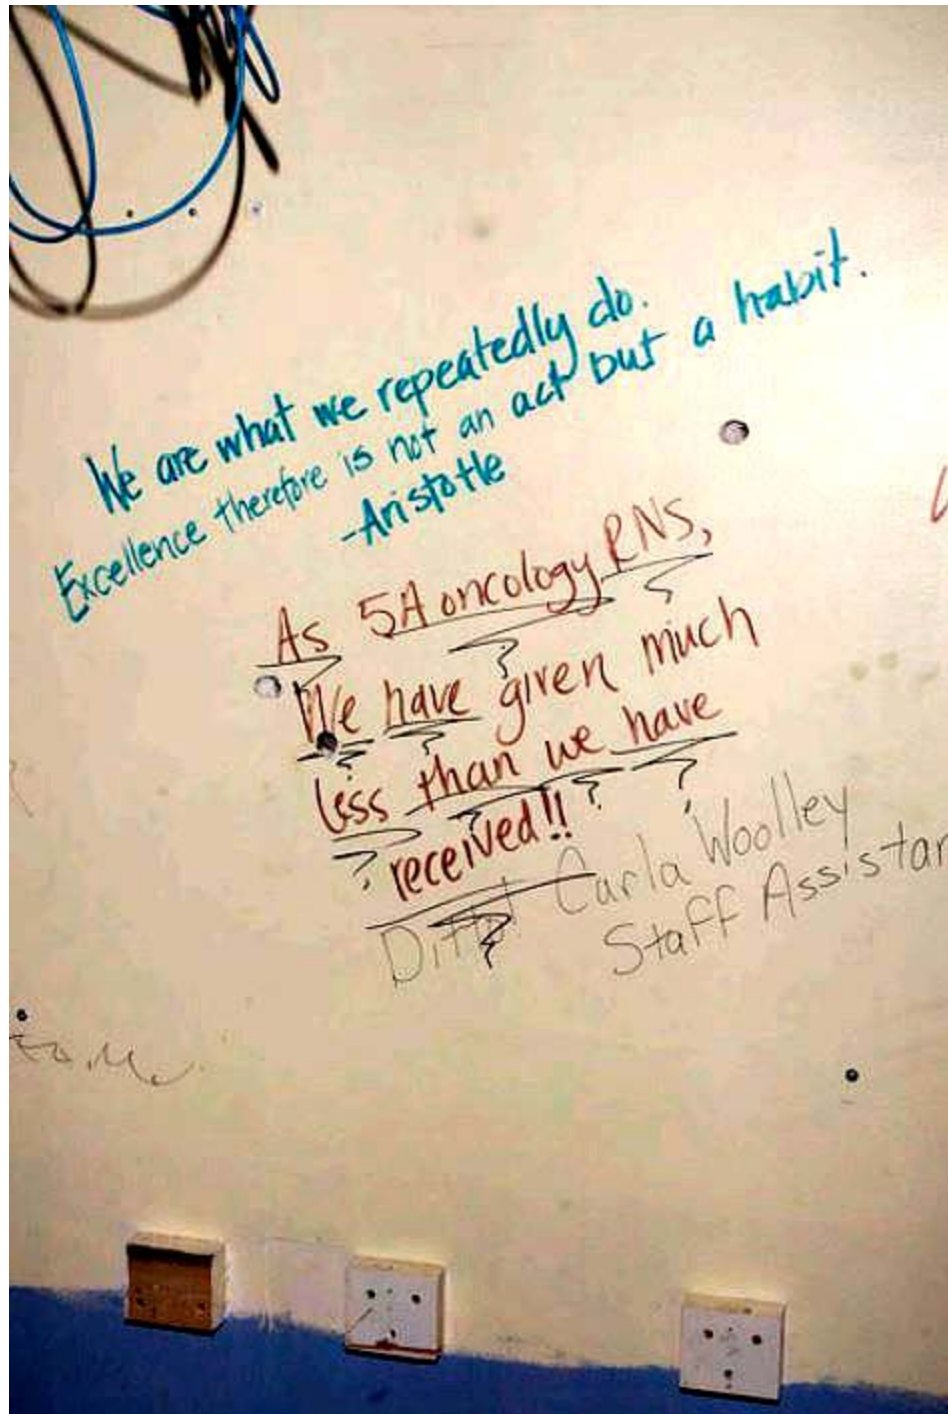 We are what we repeatedly do.
Excellence therefore is not an act but a habit.
-Aristotle
As 5A oncology RNS,
We have given much
less than we have
received!!
Carla Woolley
Staff Assistan